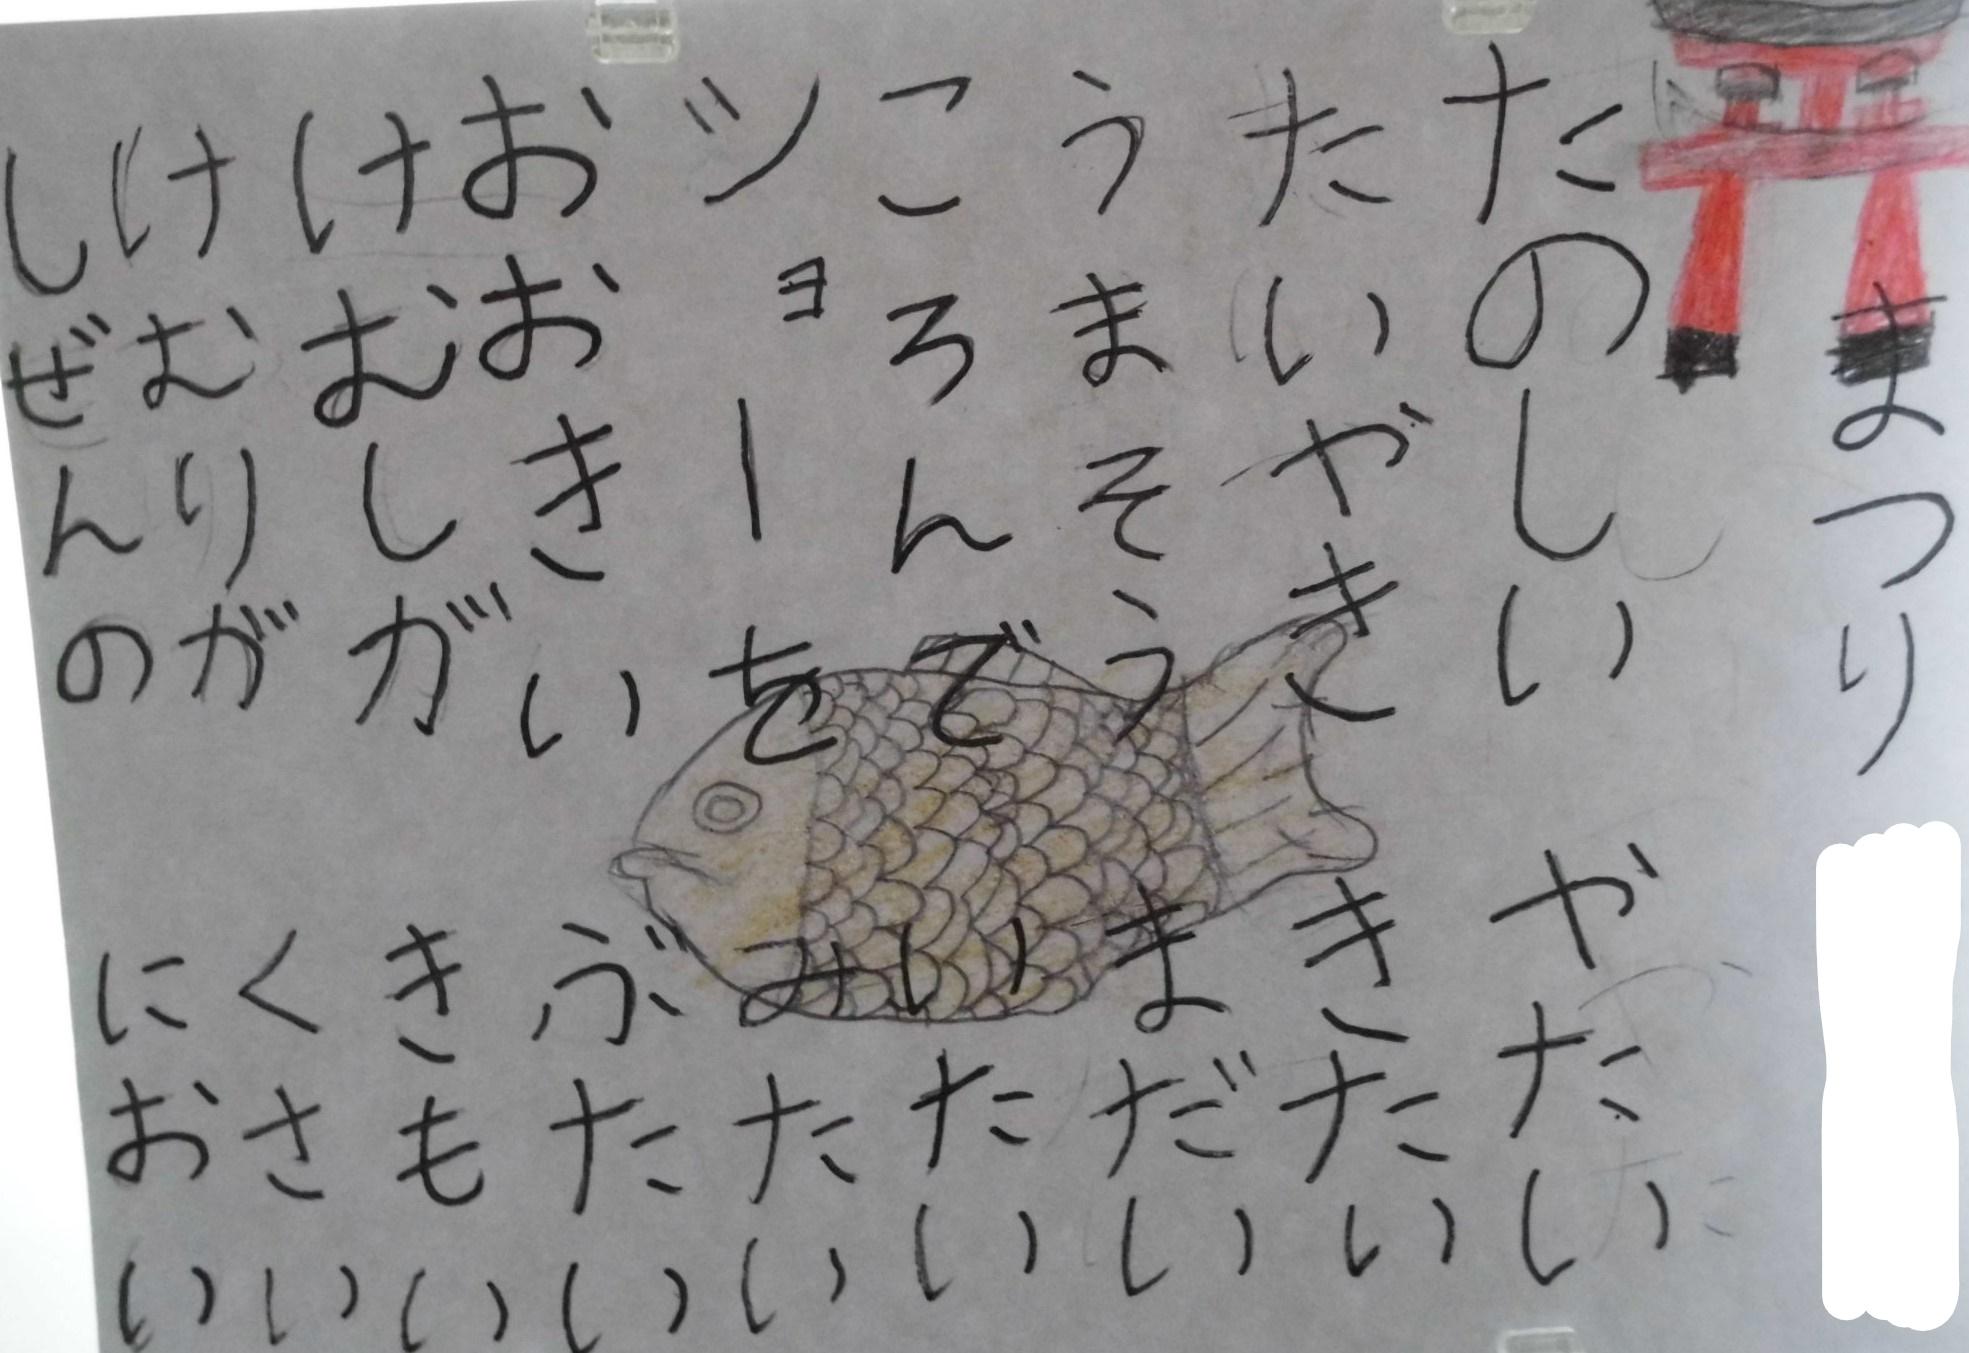 まつり
たのしい やたい
たいやき きたい
うまそう まだい
ころんで いたい
ショーを みたい
おおきい ぶたい
けむしが きもい
けむりが くさい
しぜんの におい